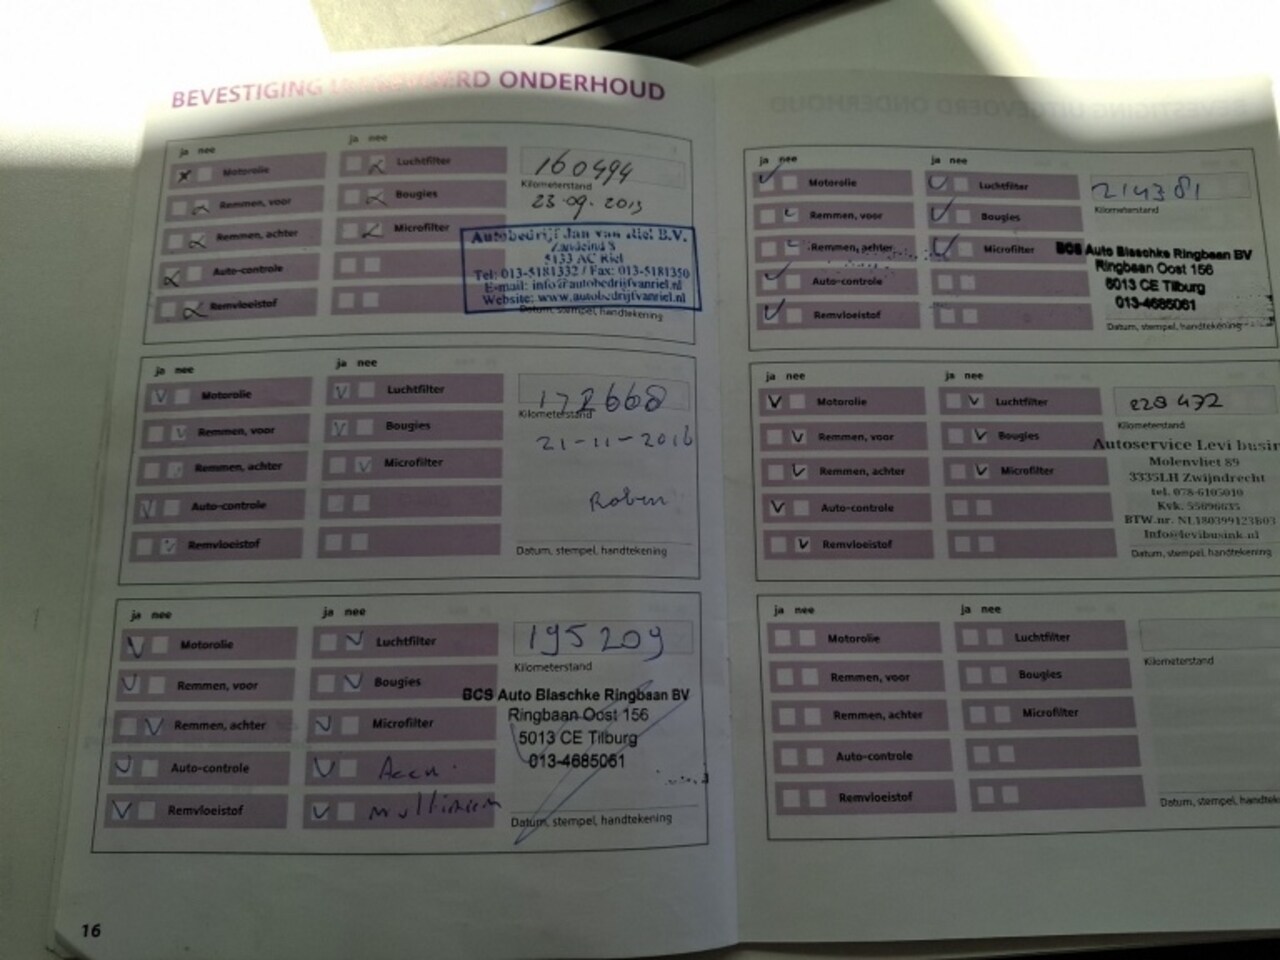 BEVESTIGING UITGEVOERD ONDERHOUD
ja nee
ja nee
Motorolie
Luchtfilter
160494
Kilometerstand
Remmen, voor
Bougies
23-09-2013
Remmen, achter
Microfilter
Auto-controle
Remvloeistof
Autobedrijf Jan van Riel B.V.
Zandeind 8
5133 AC Riel
Tel: 013-5181332 / Fax: 013-5181350
E-mail: info@autobedrijfvanriel.nl
Website: www.autobedrijfvanriel.nl
Datum, stempel, handtekening
ja nee
ja nee
Motorolie
Luchtfilter
Kilometerstand
Remmen, voor
Bougies
21-11-2016
Remmen, achter
Microfilter
Auto-controle
Remvloeistof
Datum, stempel, handtekening
ja nee
ja nee
Motorolie
Luchtfilter
195209
Kilometerstand
Remmen, voor
Bougies
Remmen, achter
Microfilter
Auto-controle
Accu
Remvloeistof
BCS Auto Blaschke Ringbaan BV
Ringbaan Oost 156
5013 CE Tilburg
013-4685061
Datum, stempel, handtekening
16
ja nee
ja nee
Motorolie
Luchtfilter
214381
Kilometerstand
Remmen, voor
Bougies
Remmen, achter
Microfilter
Auto-controle
Remvloeistof
BCS Auto Blaschke Ringbaan BV
Ringbaan Oost 156
5013 CE Tilburg
013-4685061
Datum, stempel, handtekening
ja nee
ja nee
Motorolie
Luchtfilter
228472
Kilometerstand
Remmen, voor
Bougies
Remmen, achter
Microfilter
Auto-controle
Remvloeistof
Autoservice Levi busin
Molenvliet 89
3335LH Zwijndrecht
tel. 078-6105010
Kvk. 55696635
BTW.nr. NL180399123B03
Info@levibusink.nl
Datum, stempel, handtekening
ja nee
ja nee
Motorolie
Luchtfilter
Kilometerstand
Remmen, voor
Bougies
Remmen, achter
Microfilter
Auto-controle
Remvloeistof
Datum, stempel, handtek